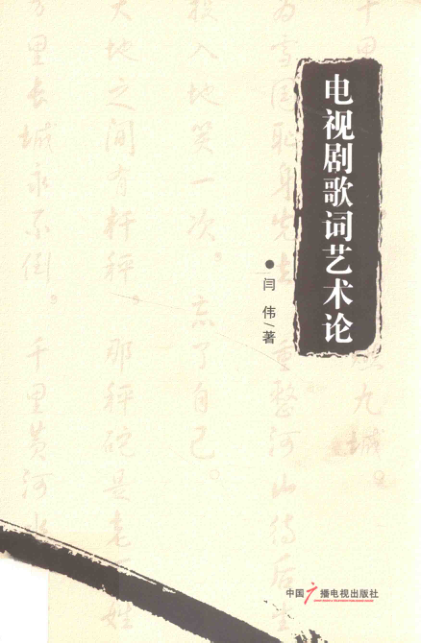 电视剧歌词艺术论
●闫伟/著
千里
九城。
为雪国耻身先
重整河山待后生
投入地笑一次。忘了自己。
天地之间有杆秤。那秤砣是老百姓
万里长城永不倒。千里黄河水
中国广播电视出版社